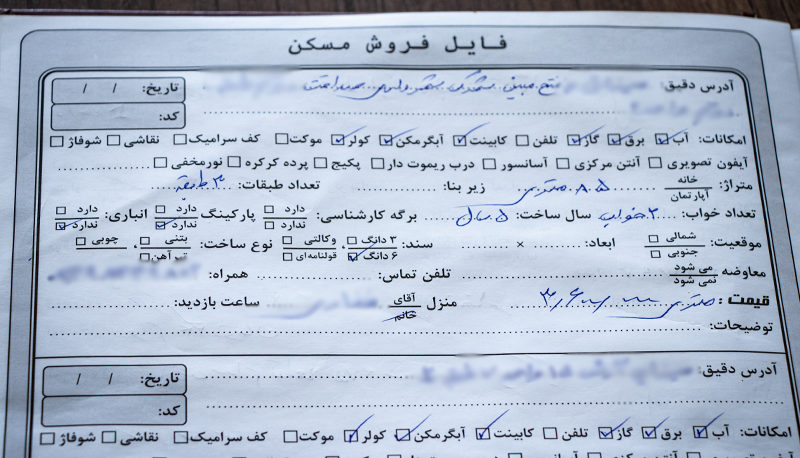 فایل فروش مسکن
آدرس دقیق: فتح مبین
تاریخ: / /
کد:
امکانات: آب برق گاز تلفن کابینت آبگرمکن کولر موکت کف سرامیک نقاشی شوفاژ
آیفون تصویری آنتن مرکزی آسانسور درب ریموت دار پکیج پرده کرکره نورمخفی
متراژ: خانه آپارتمان ۸۵ متری زیر بنا: تعداد طبقات: ۳ طبقه
تعداد خواب: ۲ خواب سال ساخت: ۵ سال برگه کارشناسی: دارد ندارد پارکینگ دارد ندارد انباری: دارد ندارد
موقعیت: شمالی جنوبی ابعاد: × سند: ۳ دانگ ۶ دانگ وکالتی قولنامه‌ای نوع ساخت: بتنی تیرآهن چوبی
معاوضه می شود نمی شود تلفن تماس: همراه:
قیمت: متری منزل آقای خانم ساعت بازدید:
توضیحات:
آدرس دقیق:
تاریخ: / /
کد:
امکانات: آب برق گاز تلفن کابینت آبگرمکن کولر موکت کف سرامیک نقاشی شوفاژ